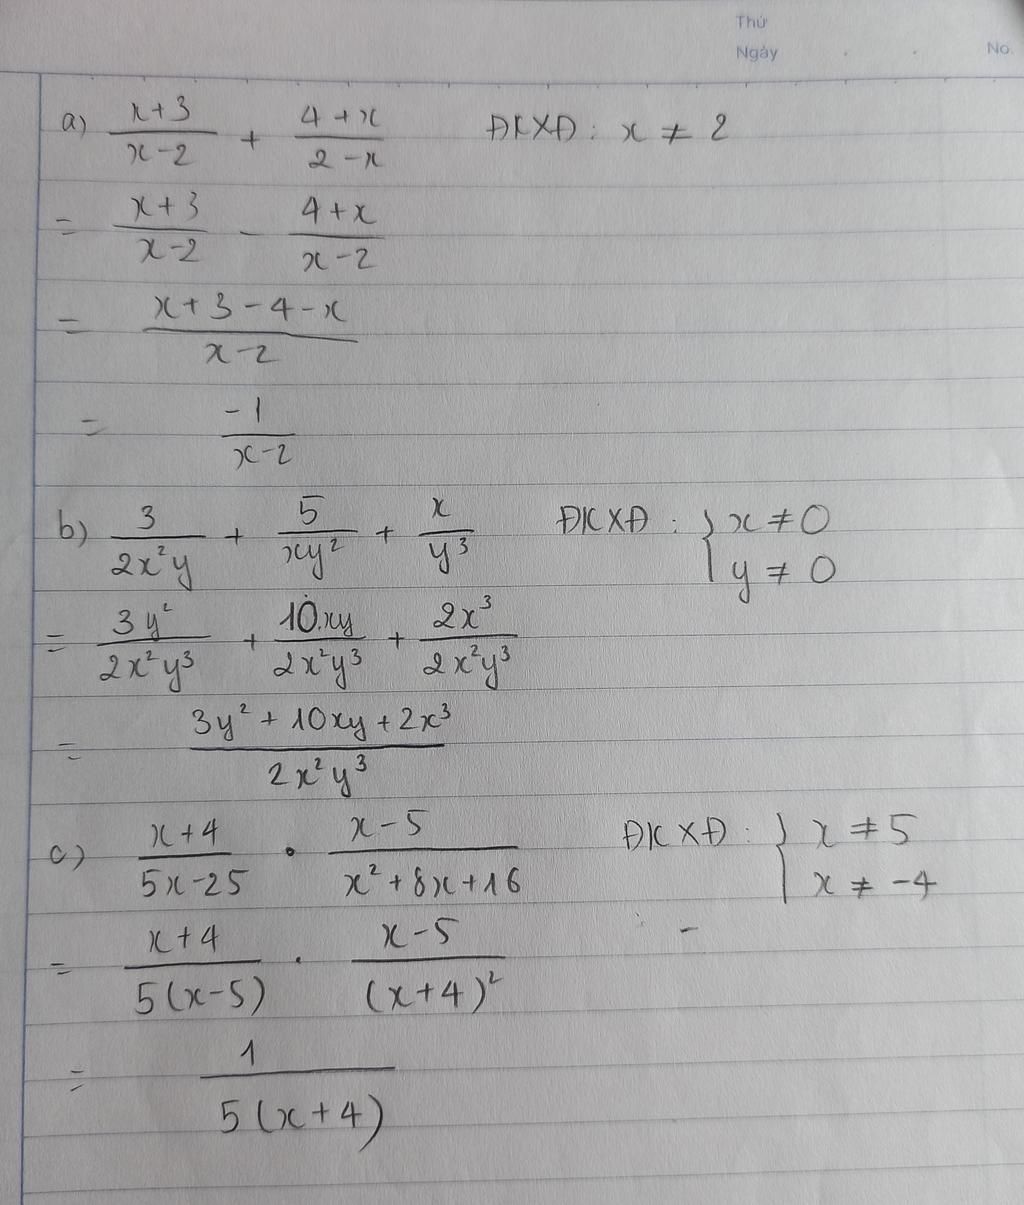 Thứ
Ngày
No.
a) \frac{x+3}{x-2} + \frac{4+x}{2-x} ĐKXĐ: x ≠ 2
= \frac{x+3}{x-2} - \frac{4+x}{x-2}
= \frac{x+3-4-x}{x-2}
= \frac{-1}{x-2}
b) \frac{3}{2x^2y} + \frac{5}{xy^2} + \frac{x}{y^3} ĐKXĐ: { x ≠ 0
y ≠ 0
= \frac{3y^2}{2x^2y^3} + \frac{10.xy}{2x^2y^3} + \frac{2x^3}{2x^2y^3}
= \frac{3y^2+10xy+2x^3}{2x^2y^3}
c) \frac{x+4}{5x-25} . \frac{x-5}{x^2+8x+16} ĐKXĐ: { x ≠ 5
x ≠ -4
= \frac{x+4}{5(x-5)} . \frac{x-5}{(x+4)^2}
= \frac{1}{5(x+4)}